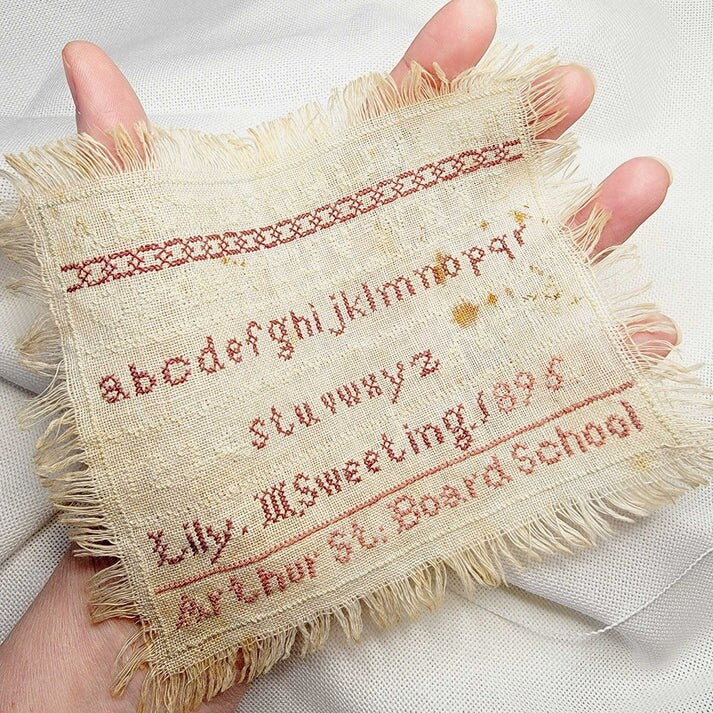 abcdefghijklmnopqr
stuvwxyz
Lily. M Sweeting, 1896
Arthur St. Board School